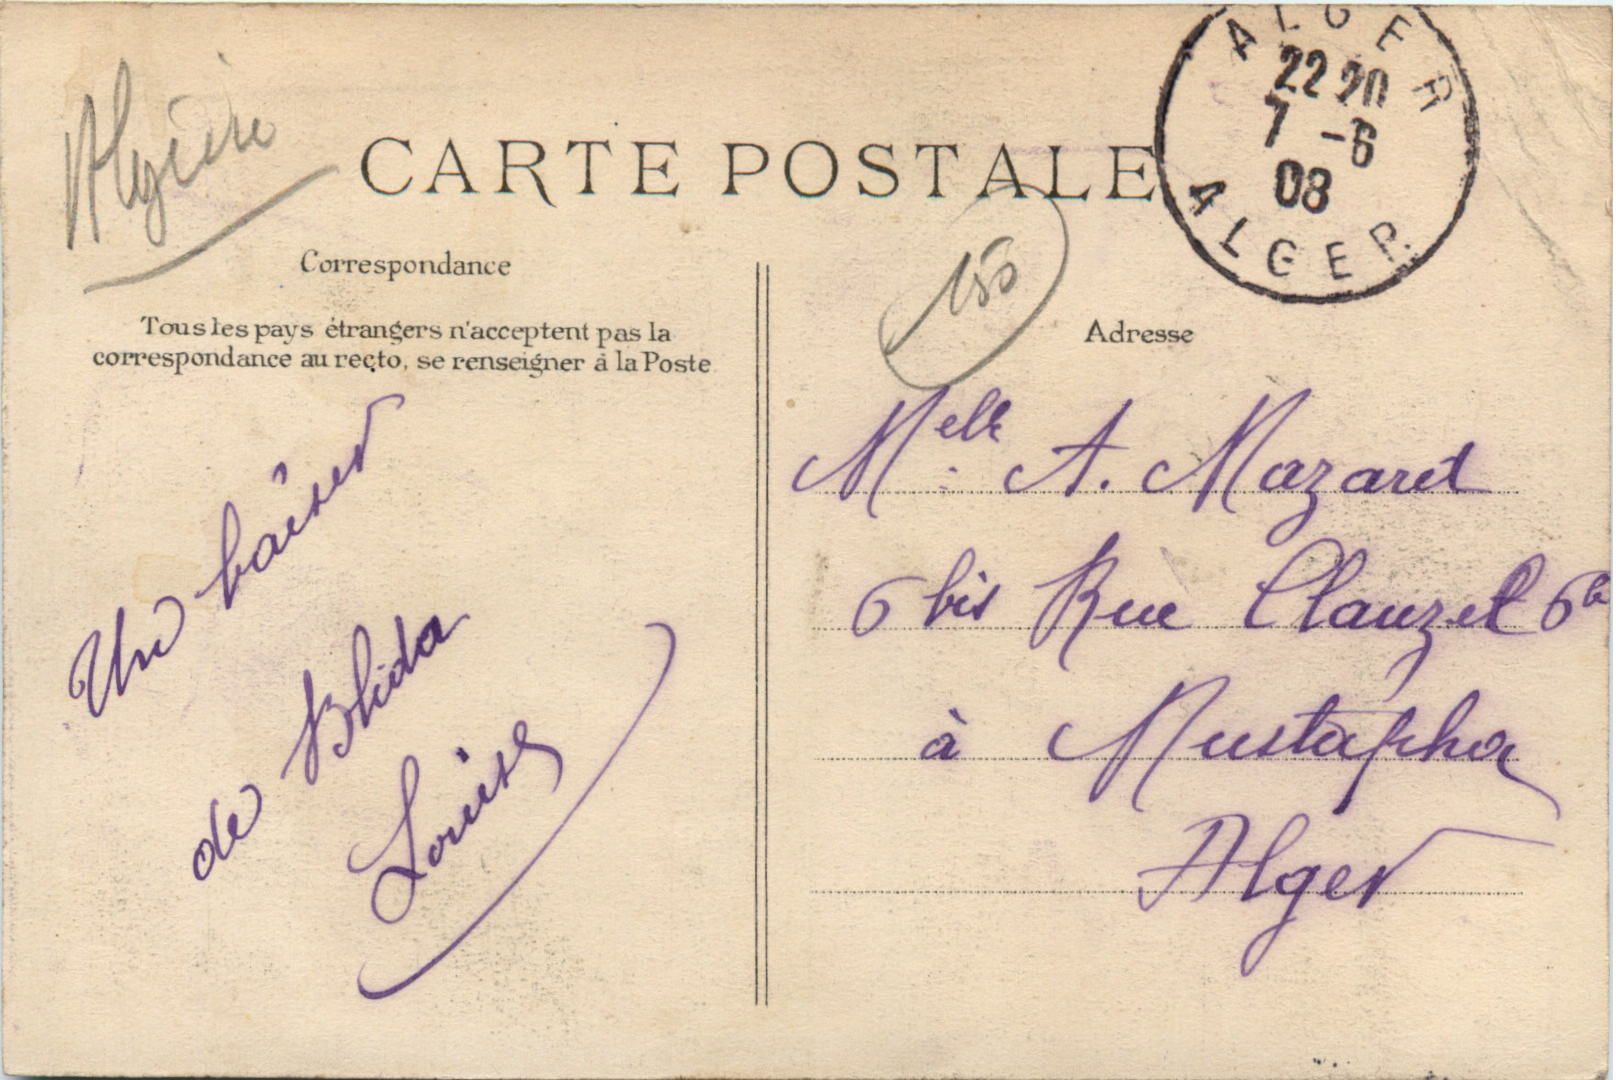 Algérie
CARTE POSTALE
ALGER
22 20
7 -6
08
ALGER
150
Correspondance
Tous les pays étrangers n'acceptent pas la
correspondance au recto, se renseigner à la Poste
Un baiser
de Blida
Louise
Adresse
Melle A. Mazaret
6 bis Rue Clauzel 6 b
à Mustapha
Alger